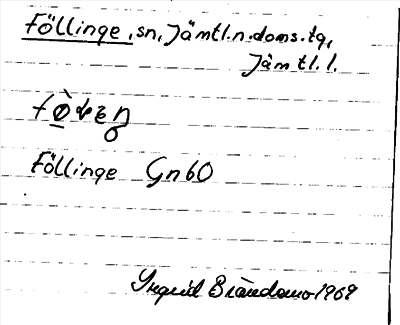 Föllinge, sn, Jämtl.n.doms.tg,
Jämtl.l.
Föllinge Gn60
Ingrid Brändemo 1969